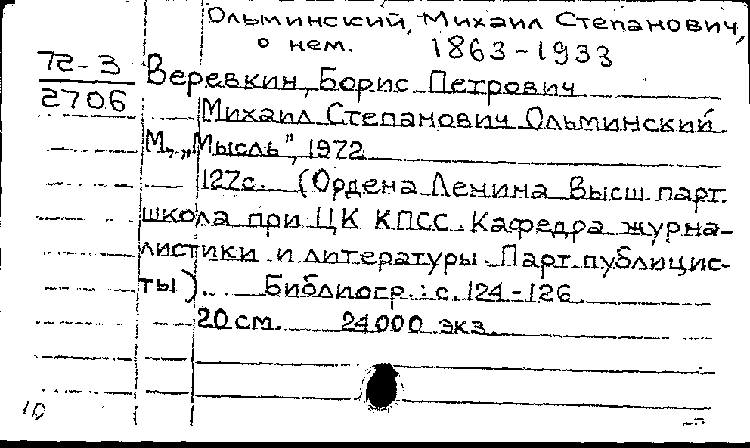 Ольминский, Михаил Степанович,
о нем. 1863-1933
72-3
2706
Веревкин, Борис Петрович
Михаил Степанович Ольминский.
М., „Мысль", 1972
127с. (Ордена Ленина Высш. парт.
школа при ЦК КПСС. Кафедра журна-
листики и литературы. Парт. публицис-
ты). Библиогр.: с. 124-126.
20 см. 24000 экз.
10